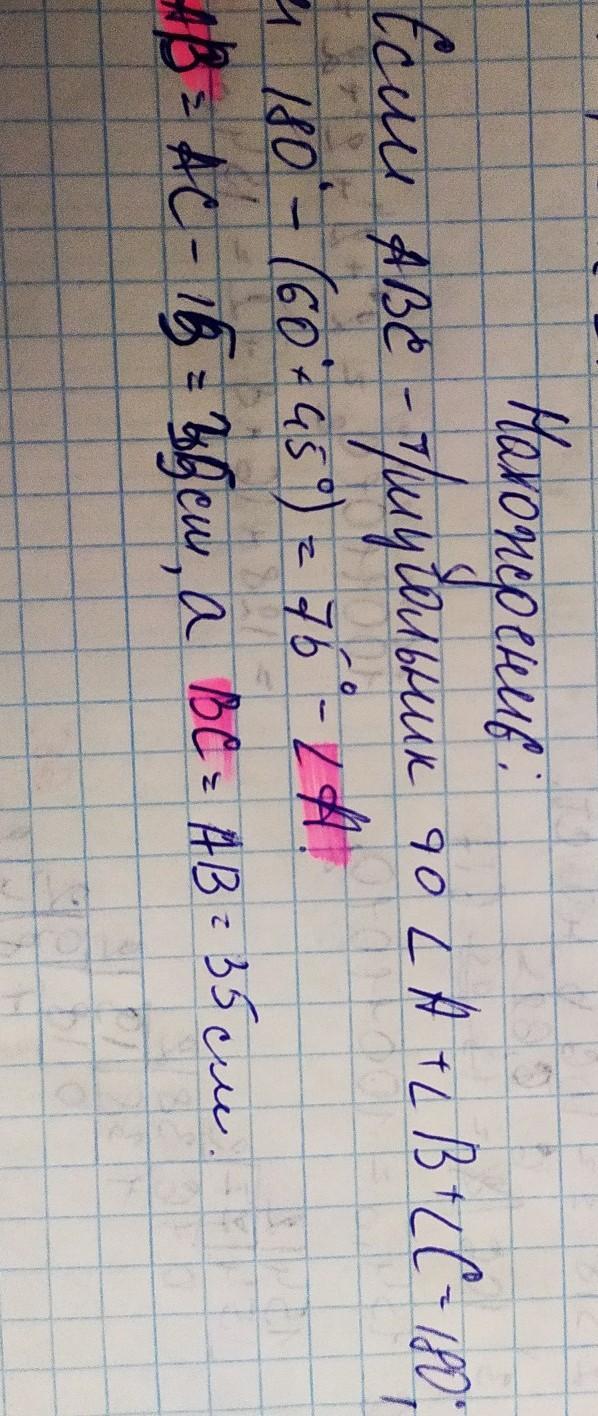 Нахождение:
Если ABC - т/уугольник то ∠A + ∠B + ∠C = 180°,
и 180° - (60° + 45°) = 75° - ∠A.
AB = AC - 15 = 35 см, а BC = AB = 35 см.